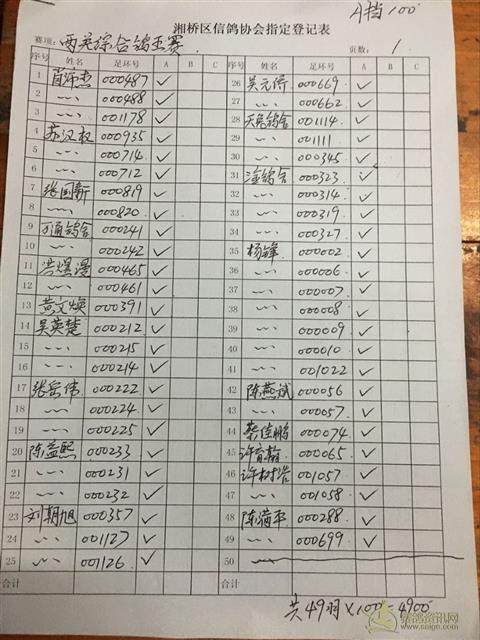 A挡100
湘桥区信鸽协会指定登记表
赛项: 两关综合鸽王赛 页数: 1
序号 姓名 足环号 A B C 序号 姓名 足环号 A B C
1 000487 ✓
2 〃 000488 ✓
3 〃 001178 ✓
4 苏汉权 000935 ✓
5 〃 000714 ✓
6 〃 000712 ✓
7 张国新 000819 ✓
8 〃 000820 ✓
9 万涌鸽舍 000241 ✓
10 〃 000242 ✓
11 000465 ✓
12 〃 000461 ✓
13 黄文焕 000391 ✓
14 吴英楚 000212 ✓
15 〃 000215 ✓
16 〃 000214 ✓
17 张岳伟 000222 ✓
18 〃 000224 ✓
19 〃 000225 ✓
20 陈益熙 000233 ✓
21 〃 000231 ✓
22 〃 000232 ✓
23 刘朝旭 000357 ✓
24 〃 001127 ✓
25 〃 001126 ✓
合计
26 000669 ✓
27 〃 000662 ✓
28 天兔鸽舍 001114 ✓
29 〃 001111 ✓
30 〃 000345 ✓
31 000323 ✓
32 〃 000314 ✓
33 〃 000319 ✓
34 〃 000327 ✓
35 杨锋 000002 ✓
36 〃 000006 ✓
37 〃 000007 ✓
38 〃 000008 ✓
39 〃 000009 ✓
40 〃 000010 ✓
41 〃 001022 ✓
42 陈燕斌 000056 ✓
43 〃 000057 ✓
44 蔡佳鹏 000074 ✓
45 许育翰 000065 ✓
46 许树浩 001057 ✓
47 〃 001058 ✓
48 陈满平 000288 ✓
49 〃 000699 ✓
50
合计
共49羽×100=4900
信鸽资讯网